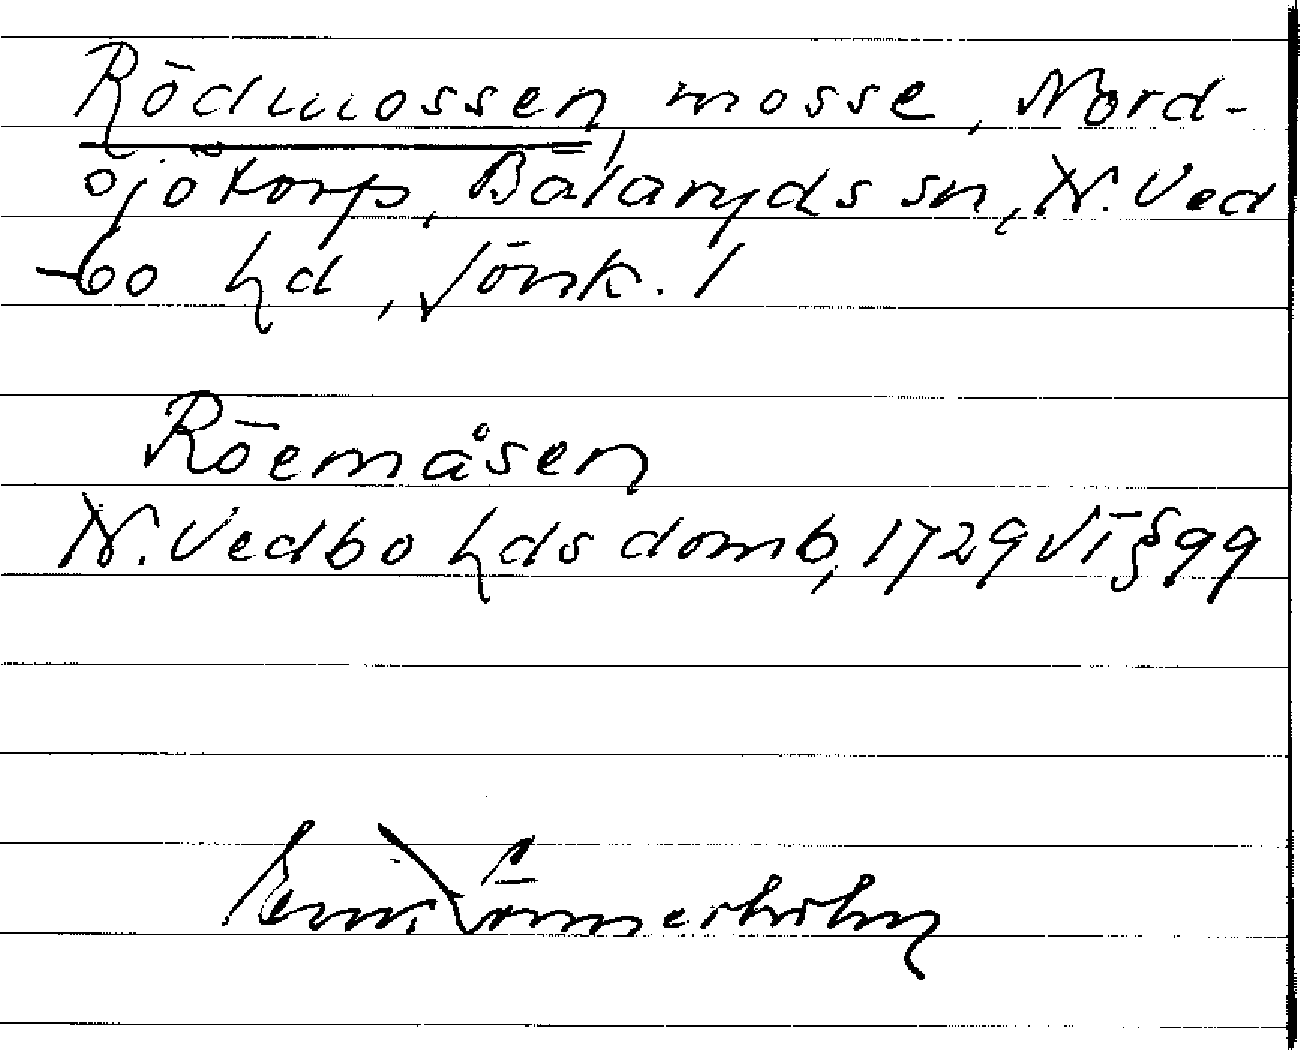 Rödmossen, mosse, Nord-
sjötorp, Bälaryds sn, N. Ved
-bo hd, Jönk. l
Röemåsen
N. Vedbo hds domb, 1729 VI § 99